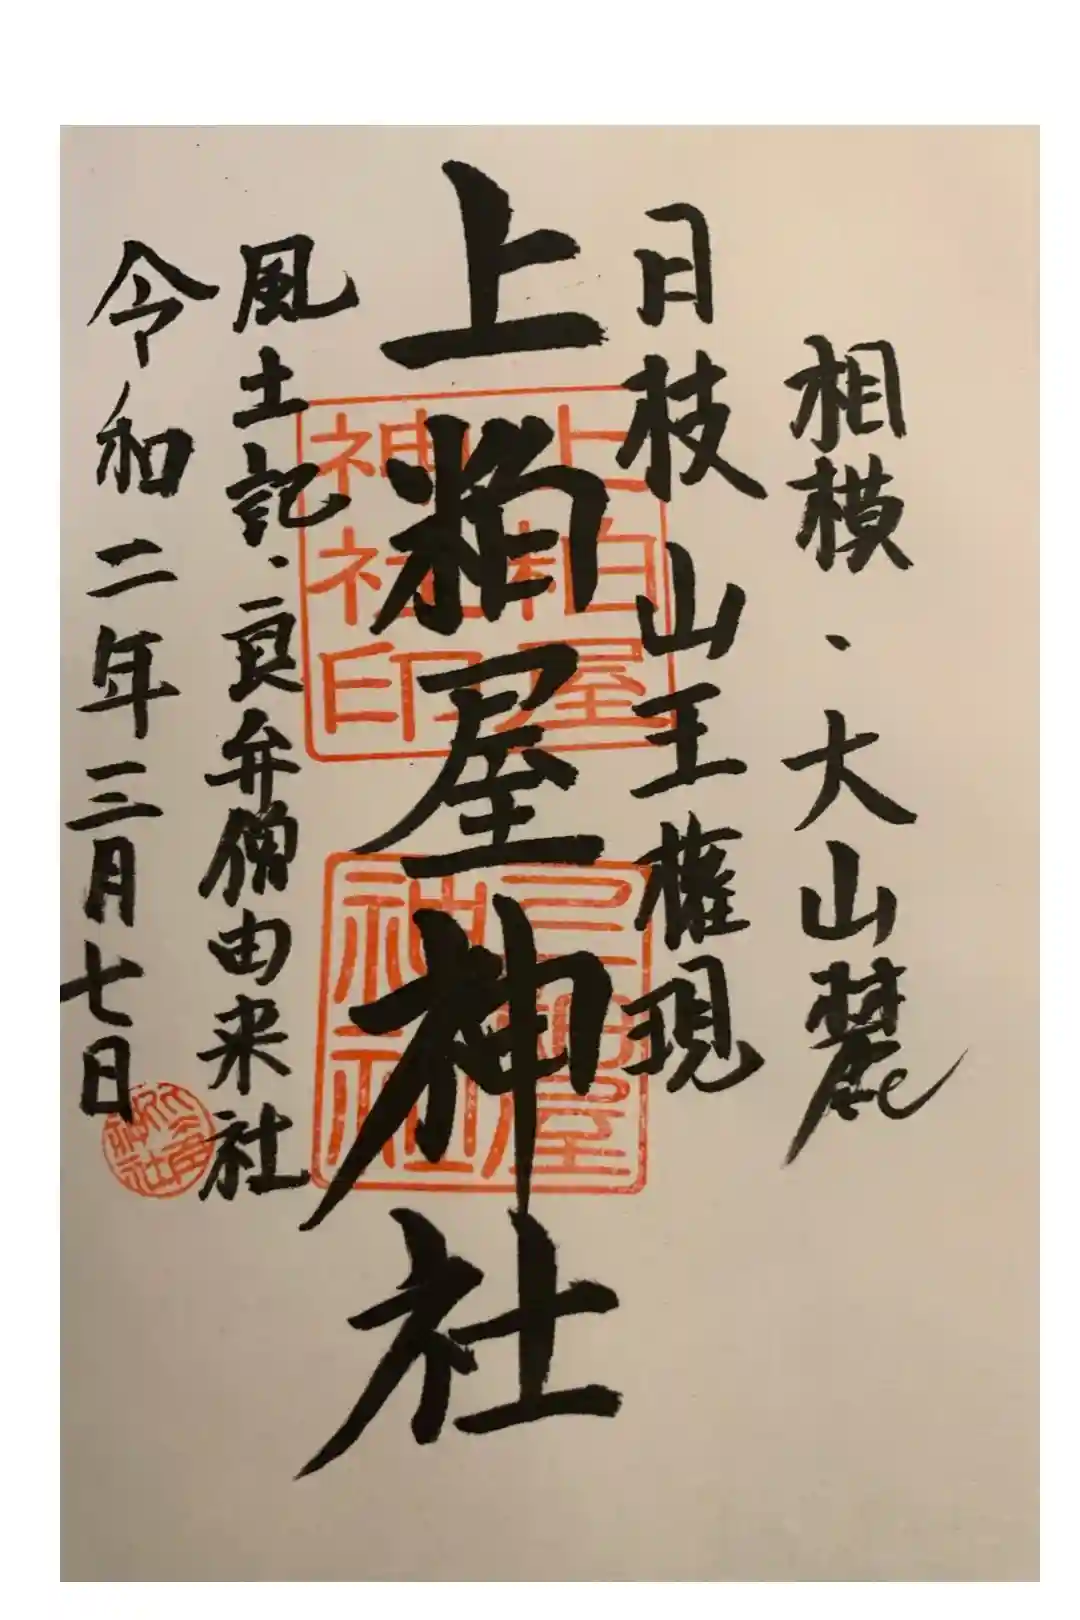 相模、大山麓
日枝山王権現
上粕屋神社
風土記、良弁僧由来社
令和二年三月七日
上粕屋
神社印
上粕屋
神社